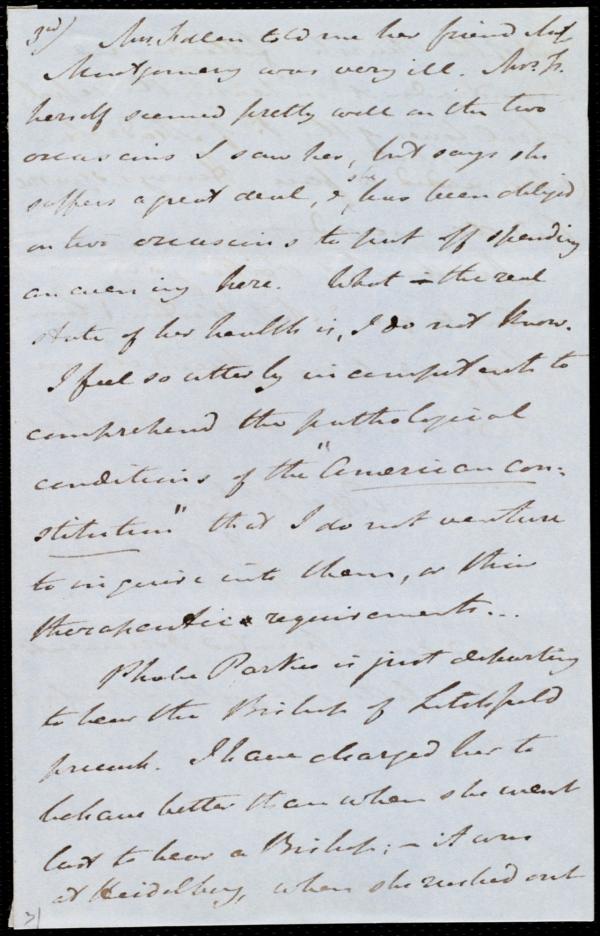 3rd) Mrs. Follen told me her friend Miss
Montgomery was very ill. Mrs. F.
herself seemed pretty well on the two
occasions I saw her, but says she
suffers a great deal, & she has been obliged
on two occasions to put off spending
an evening here. What the real
state of her health is, I do not know.
I feel so utterly incompetent to
comprehend the pathological
conditions of the "American con-
stitution" that I do not venture
to inquire into them, or their
therapeutic requirements...
Phoebe Parkes is just departing
to hear the Bishop of Litchfield
preach. I have charged her to
behave better than when she went
last to hear a Bishop; - it was
at Heidelberg, when she rushed out